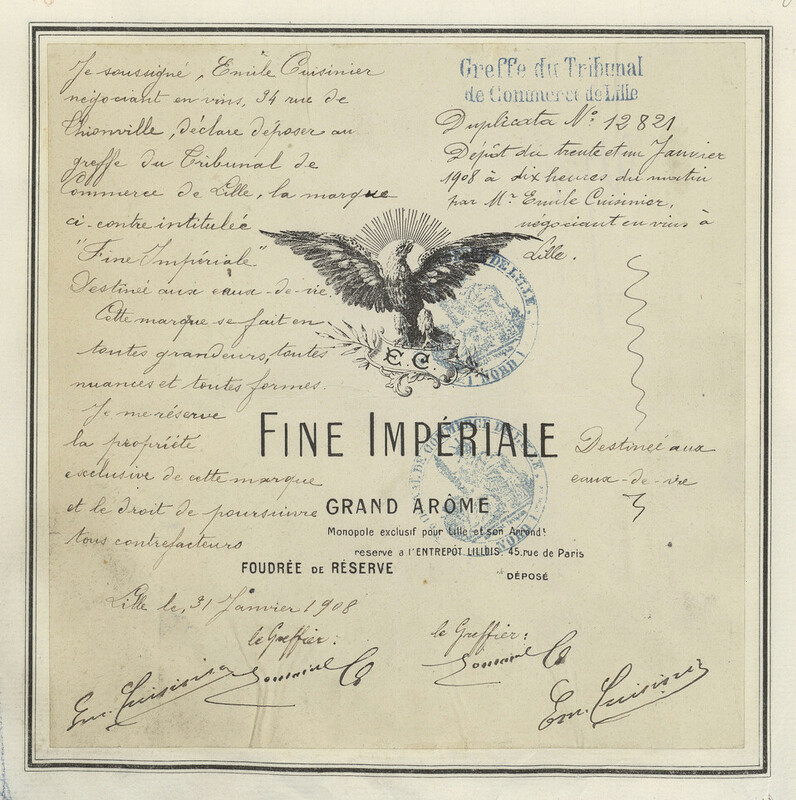 Je soussigné, Emile Cuisinier
négociant en vins, 34 rue de
Thionville, déclare déposer au
greffe du Tribunal de
Commerce de Lille, la marque
ci-contre intitulée
"Fine Impériale"
Destinée aux eaux-de-vie.
Cette marque se fait en
toutes grandeurs, toutes
nuances et toutes formes.
Je me réserve
la propriété
exclusive de cette marque
et le droit de poursuivre
tous contrefacteurs
Lille le, 31 Janvier 1908
le Greffier:
Em. Cuisinier
Greffe du Tribunal
de Commerce de Lille
Duplicata No 12821
Dépôt du trente et un Janvier
1908 à dix heures du matin
par Mr Emile Cuisinier,
négociant en vins à
Lille.
E.C.
FINE IMPÉRIALE
Destinée aux
eaux-de-vie
GRAND ARÔME
Monopole exclusif pour Lille et son Arrondt
réservé a l'ENTREPÔT LILLOIS, 45, rue de Paris
FOUDRÉE DE RÉSERVE
DÉPOSÉ
le Greffier:
Em. Cuisinier
DE LILLE
(NORD)
DE COMMERCE DE LILLE
(NORD)